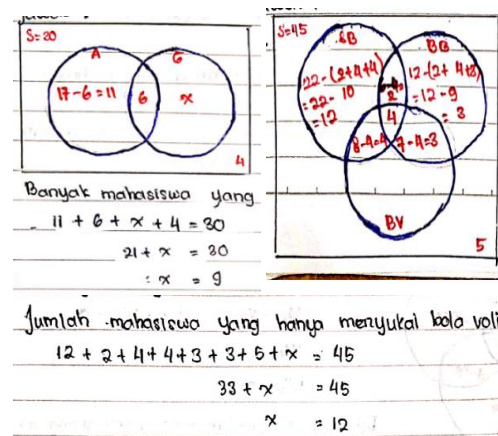 S=30
A
G
17-6=11
6
x
4
Banyak mahasiswa yang
11 + 6 + x + 4 = 30
21 + x = 30
x = 9
S=45
SB
BB
22-(2+4+4)
=22-10
=12
6-4=
2
12-(2+4+3)
=12-9
=3
4
8-4=4
7-4=3
BV
5
Jumlah mahasiswa yang hanya menyukai bola voli
12 + 2 + 4 + 4 + 3 + 3 + 5 + x = 45
33 + x = 45
x = 12